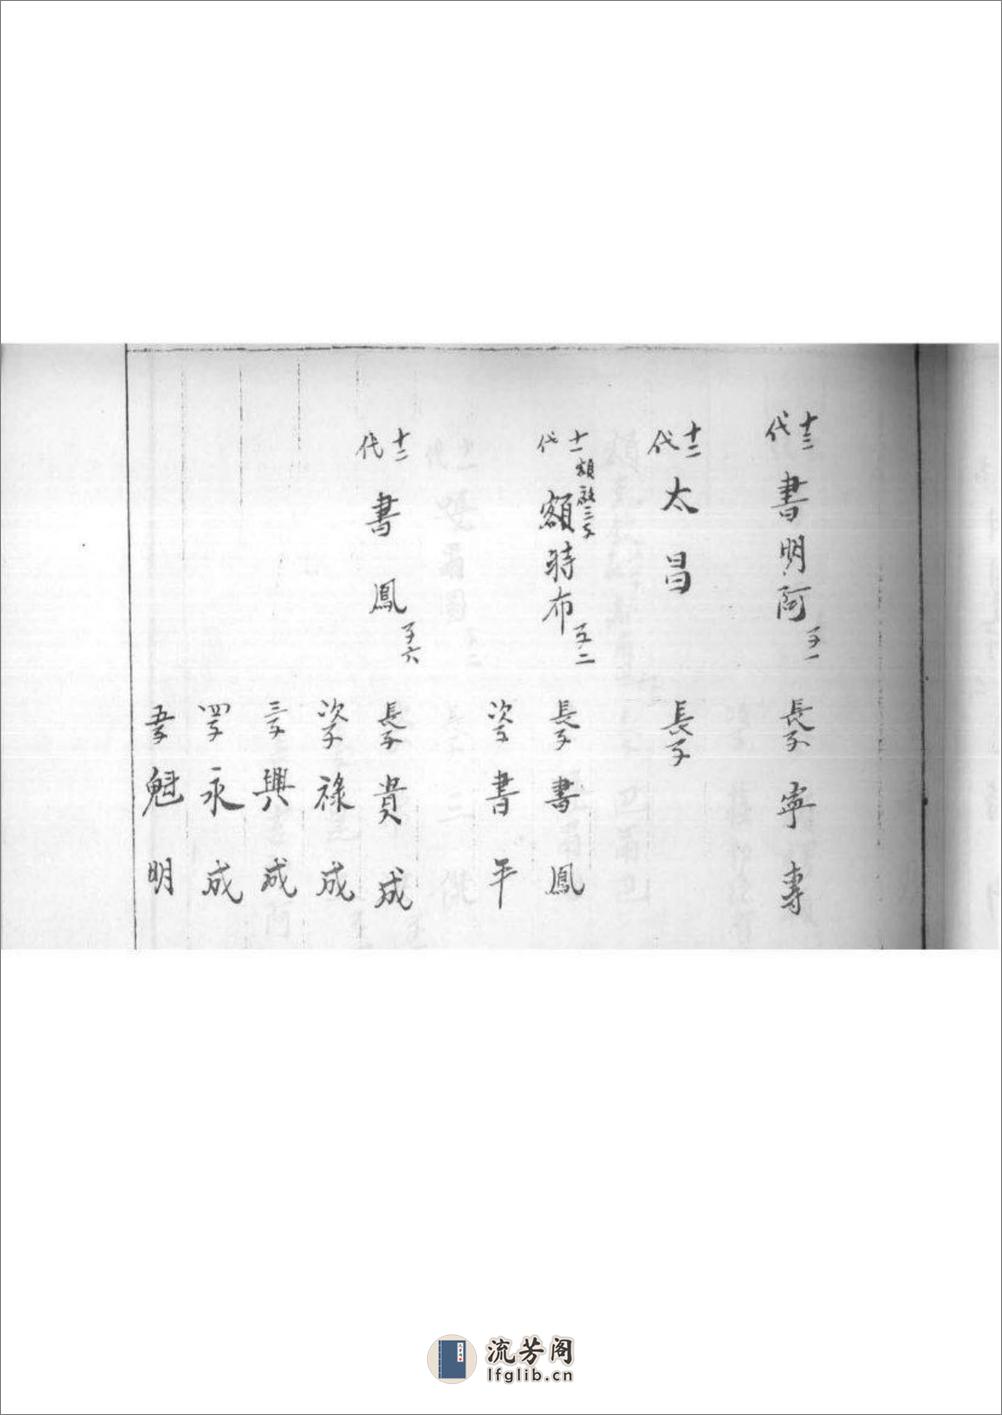 十三代 書明阿 子一 長子 寧專
十二代 太昌 長子
十一代 額時布 子二 長子 書鳳
次子 書平
十二代 書鳳 子六 長子 貴成
次子 祿成
三子 興成
四子 永成
五子 魁明
流芳阁
lfglib.cn